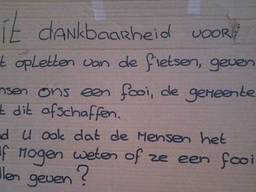 it dankbaarheid voor
t opletten van de fietsen, geven
nsen ons een fooi, de gemeente
t dit afschaffen.
d u ook dat de mensen het
f mogen weten of ze een fooi
llen geven?